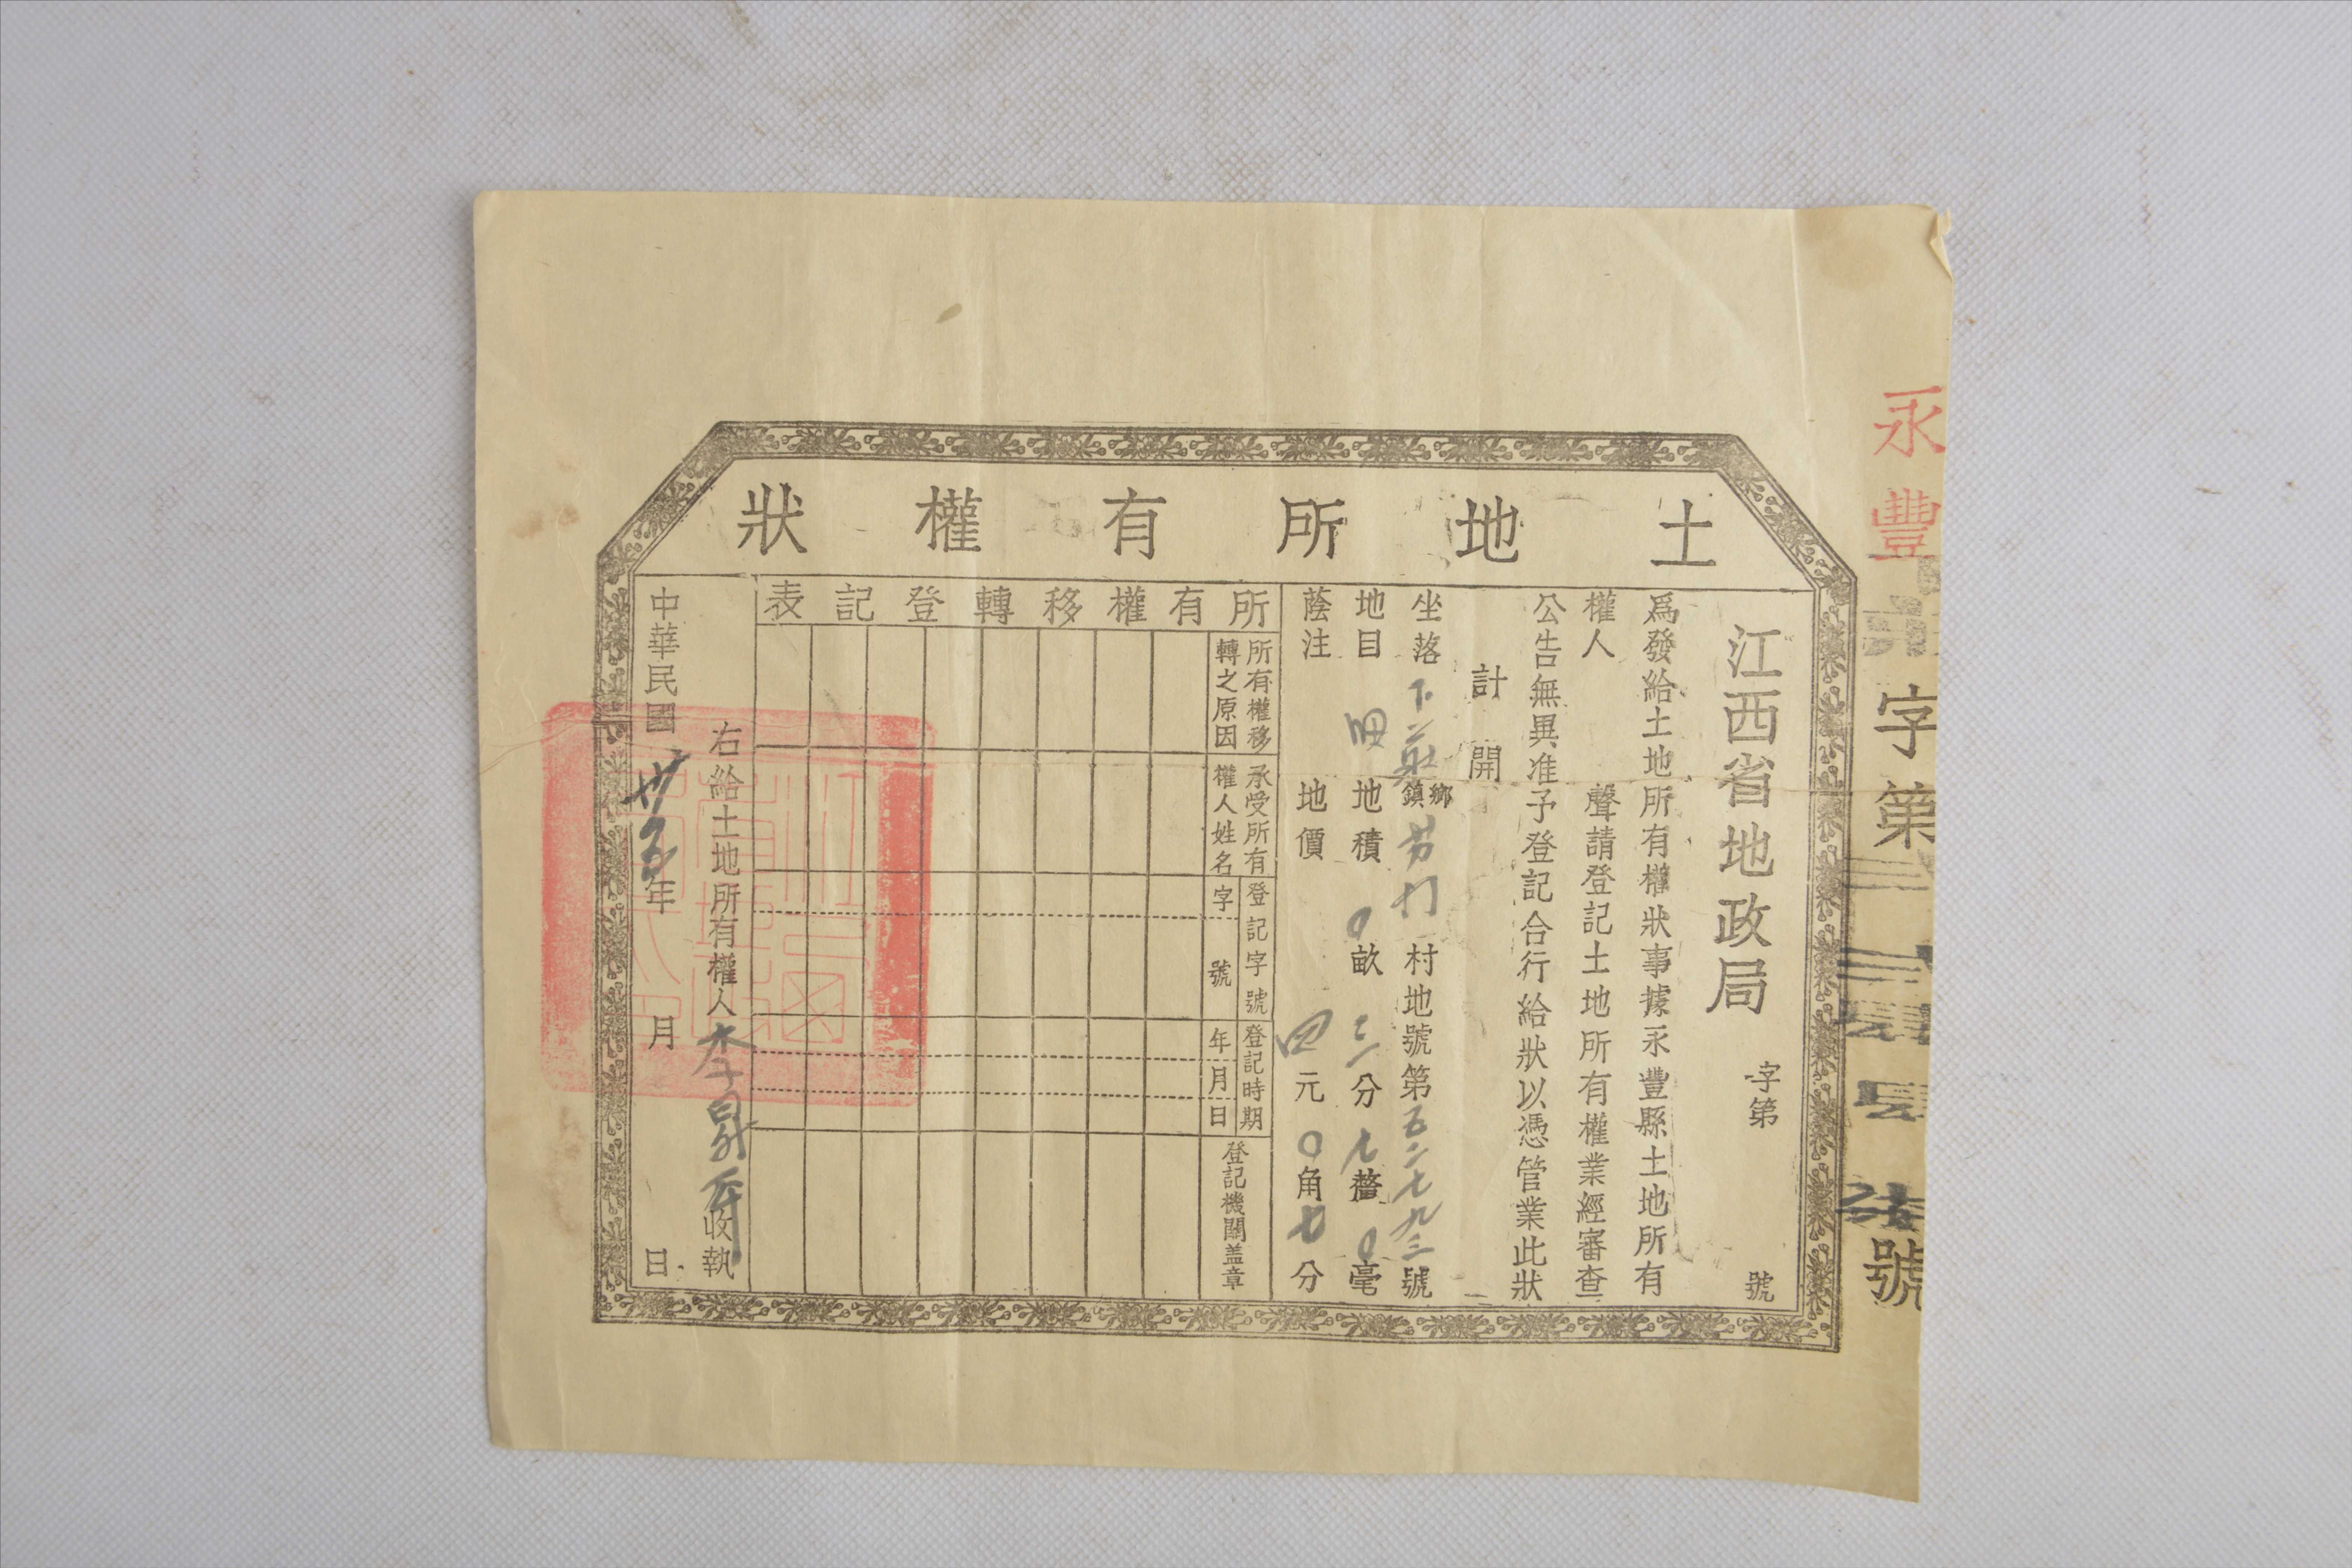 永豐
字第
號
土地所有權狀
江西省地政局
字第 號
為發給土地所有權狀事據永豐縣土地所有
權人 聲請登記土地所有權業經審查
公告無異准予登記合行給狀以憑管業此狀
計開
坐落下 鄉鎮 村地號第五二七九三號
地目 地積0畝三分七釐0毫
蔭注 地價四元0角七分
所有權移轉登記表
所有權移轉之原因
承受所有權人姓名
登記字號
字 號
登記時期
年月日
登記機關盖章
右給土地所有權人李昇 收執
中華民國卅五年 月 日